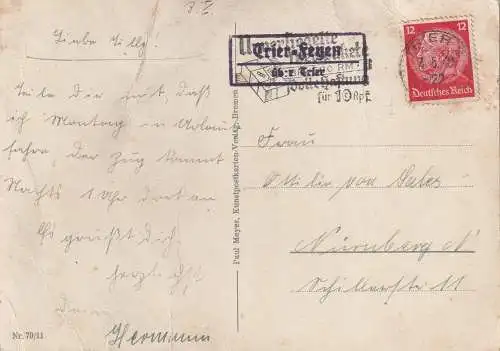 Liebe Tilly.
Teile dir mit, daß
ich Montag in Urlaub
fahre, der Zug kommt
Nachts 1 Uhr dort an
Es grüßt dich
herzlichst
dein
Hermann
Nr. 70/11
Paul Meyer, Kunstpostkarten-Verlag, Bremen
Trier-Feyen
üb. Trier
für 10 Rpf.
TRIER
12 12
Deutsches Reich
Frau
von
Nürnberg
11